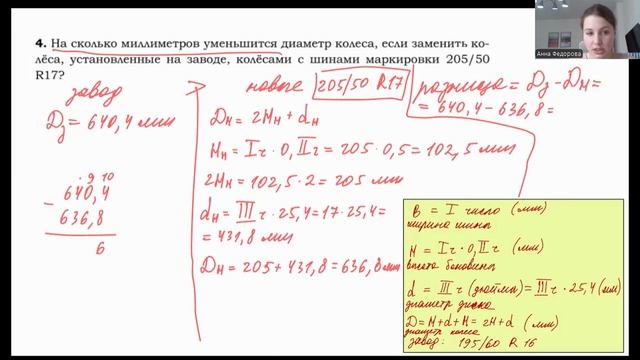 4. На сколько миллиметров уменьшится диаметр колеса, если заменить ко-
лёса, установленные на заводе, колёсами с шинами маркировки 205/50
R17?
завод > новые 205/50 R17 разница = Dз - Dн =
= 640,4 - 636,8 =
Dз = 640,4 мм
Dн = 2Hн + dн
Hн = Iч · 0,IIч = 205 · 0,5 = 102,5 мм
2Hн = 102,5 · 2 = 205 мм
dн = IIIч · 25,4 = 17 · 25,4 =
= 431,8 мм
Dн = 205 + 431,8 = 636,8 мм
. 9 10
640,4
- 636,8
6
B = I число (мм)
ширина шины
H = Iч · 0,IIч (мм)
высота боковины
d = IIIч (дюймы) = IIIч · 25,4 (мм)
диаметр диска
D = H + d + H = 2H + d (мм)
диаметр колеса
завод: 195/60 R 16
Анна Федорова